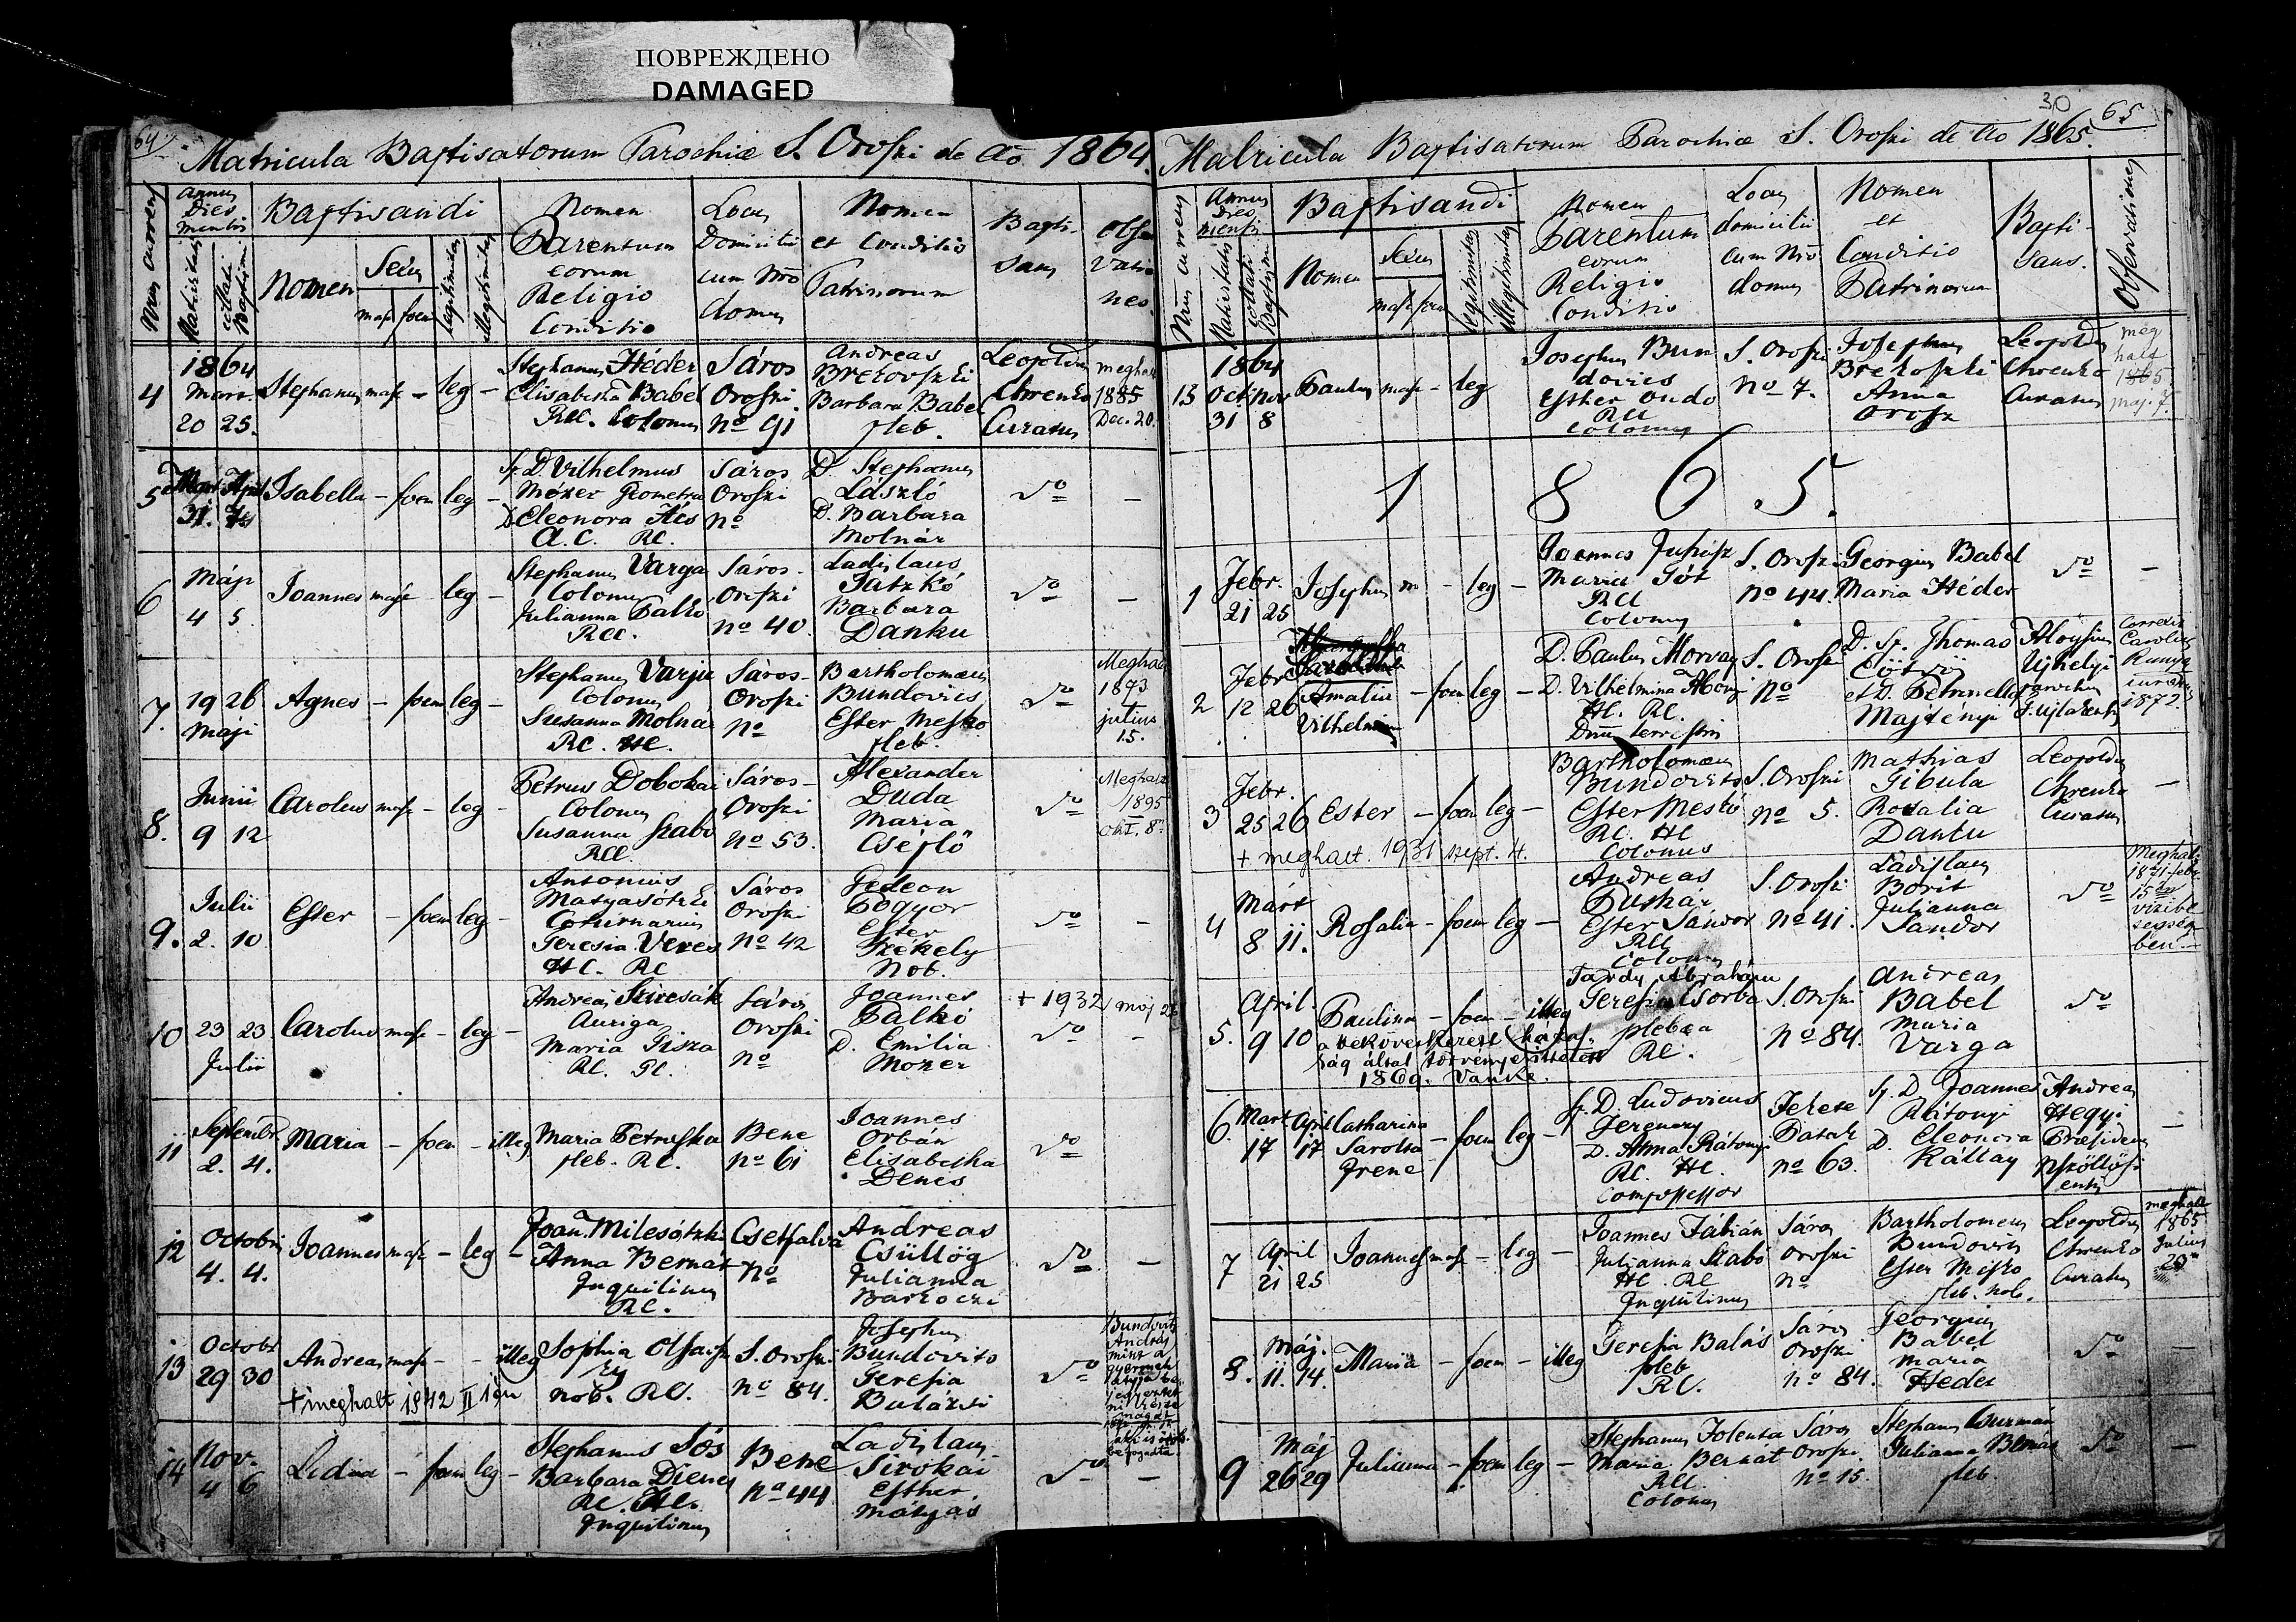 ПОВРЕЖДЕНО
DAMAGED
64
Matricula Baptisatorum Parochiæ S. Oroszi de Ao 1864.
Annus
Dies
Baptisandi
Nomen
Sexus
masc foem
legitimitas
illegitimitas
Nomen
Parentum
eorum
Religio
Conditio
Locus
Domicilii
cum Nro
domus
Nomen
et Conditio
Patrinorum
Bapti-
sans
Obser
vatio
nes
4
1864
Mart.
20 25.
Stephanus masc - leg -
Stephanus Héder
Elisabetha Babel
RCC. Colonus
Sáros
Oroszi
No 91
Andreas
Brezovszki
Barbara Babel
pleb.
Leopoldus
Chrenko
Curatus
meghalt
1885
Dec. 20.
5
31.
Isabella - foem leg -
Sp. D. Vilhelmus
Mózer Geometra
D. Eleonora Ács
A.C. RC.
Sáros
Oroszi
No
D. Stephanus
László
D. Barbara
Molnár
do
-
6
Máji
4 5.
Joannes masc - leg -
Stephanus Varga
Colonus
Julianna Palkó
RCC.
Sáros-
Oroszi
No 40.
Ladislaus
Patzkó
Barbara
Danku
do
-
7.
19 26
Máji
Agnes - foem leg -
Stephanus Varju
Colonus
Susanna Molnar
RC. HC.
Sáros-
Oroszi
No
Bartholomæus
Bundovics
Ester Mesko
pleb.
do
Meghalt
1893
julius
15.
8.
Junii
9 12
Carolus masc - leg -
Petrus Dobokai
Colonus
Susanna Szabo
RCC.
Sáros-
Oroszi
No 53.
Alexander
Duda
Maria
Cséplő
do
Meghalt
1895
okt. 8.
9.
Julii
2. 10
Ester - foem leg -
Antonius
Matyasótzki
Coturnarius
Teresia Veres
HC. RC
Sáros
Oroszi
No 42
Gedeon
Bogyor
Ester
Székely
Nob.
do
-
10
23 23
Julii
Carolus masc - leg -
Andreas
Auriga
Maria Tisza
RC. GC.
Sáros
Oroszi
No
Joannes
Palkó
D. Emilia
Mozer
+ 1932 máj 2
do
-
11
Septembr
2. 4.
Maria - foem - illeg
Maria Petruska
pleb. RC.
Bene
No 61
Joannes
Orbán
Elisabetha
Dencs
do
12
Octobris
4. 4.
Joannes masc - leg -
Joan. Milesótzki
Anna Bernát
Inquilinus
RC.
Csetfalva
No
Andreas
Csüllög
Julianna
Barkoczi
do
-
13
Octobr
29 30
Andreas masc - - illeg
+ meghalt 1942 II 1én
Sophia
nob. RC.
S. Oroszi
No 84.
Josephus
Bundovits
Teresia
Butázsi
do
Bundovits
András
mint a
gyermek
14
Nov.
4 6
Lidia - foem leg -
Stephanus Sós
Barbara Dienes
RC. HC.
Inquilinus
Bene
No 44
Ladislaus
Sirokai
Esther
Mátyás
do
-
30
65
Matricula Baptisatorum Parochiæ S. Oroszi de Ao 1865.
Annus
Dies
mensis
Baptisandi
Nomen
Sexus
masc foem
legitimitas
illegitimitas
Nomen
Parentum
eorum
Religio
Conditio
Locus
domicilii
cum Nro
domus
Nomen
et
Conditio
Patrinorum
Bapti-
sans.
Observationes
15
1864
Oct Nov
31 8
Paulus masc - leg
Josephus Bun
dovics
Esther Oudo
RCC
Colonus
S. Oroszi
No 7.
Josephus
Brezoszki
Anna
Orosz
Leopoldus
Chrenko
Curatus
meg
halt
1865
maj. 7.
1 8 6 5.
1
Febr.
21 25
Josephus m - leg -
Joannes Juhász
Maria Tót
RCC
Colonus
S. Oroszi
No 44.
Georgius Babel
Maria Héder
do
-
2
Febr
12 26
Amalia
Vilhelmina
- foem leg -
D. Paulus Morvay
D. Vilhelmina
HC. RC.
Dnus terrestris
S. Oroszi
No
D. Sp. Thomas
Eötvös
et D. Petronella
Majtényi
Aloysius
Ujhelyi
Parochus
Correxit
Carolus
1872.
3
Febr.
25 26
Ester - foem leg -
+ meghalt. 1931 szept. 4.
Bartholomæus
Bundovits
Ester Meskó
RC. HC
Colonus
S. Oroszi
No 5.
Mathias
Gibula
Rozalia
Danku
Leopoldus
Chrenko
Curatus
-
4
Márt
8 11.
Rosalia - foem leg -
Andreas
Puskár
Ester Sándor
RCC
Colonus
S. Oroszi
No 41.
Ladislaus
Borit
Julianna
Sandor
do
Meghalt
15én
vizibe
tegség
ben.
5.
April.
9 10
Paulina - foem - illeg
ság által törvényesíttetett
1869.
Tardy Ábrahám
Teresia Csorba
plebea
RC.
S. Oroszi
No 84.
Andreas
Babel
Maria
Varga
do
6.
Mart April
17 17
Catharina
Sarolta
Irene
- foem leg -
Sp. D. Ludovicus
Ferenczy
D. Anna Rátonyi
RC. HC.
Compossessor
Fekete
Patak
No 63.
Sp. D. Joannes
Rátonyi
D. Eleonora
Kállay
Andreas
Hegyi
Præsidens
-
7
April
21 25
Joannes masc - leg -
Joannes Fábián
Julianna Szabó
HC. RC
Inquilinus
Sáros
Oroszi
No
Bartholomeus
Bundovits
Ester Misko
pleb. nob.
Leopoldus
Chrenko
Curatus
meghalt
1865
Julius
8.
Máj.
11. 14.
Maria - foem - illeg
Teresia Balás
pleb
RC.
Sáros
Oroszi
No 84.
Georgius
Babel
Maria
Heder
do
-
9
Máj
26 29
Julianna - foem leg -
Stephanus Folenta
Maria Bernát
RCC.
Colonus
Sáros
Oroszi.
No 15.
Stephanus
Julianna Bernát
pleb.
do
-